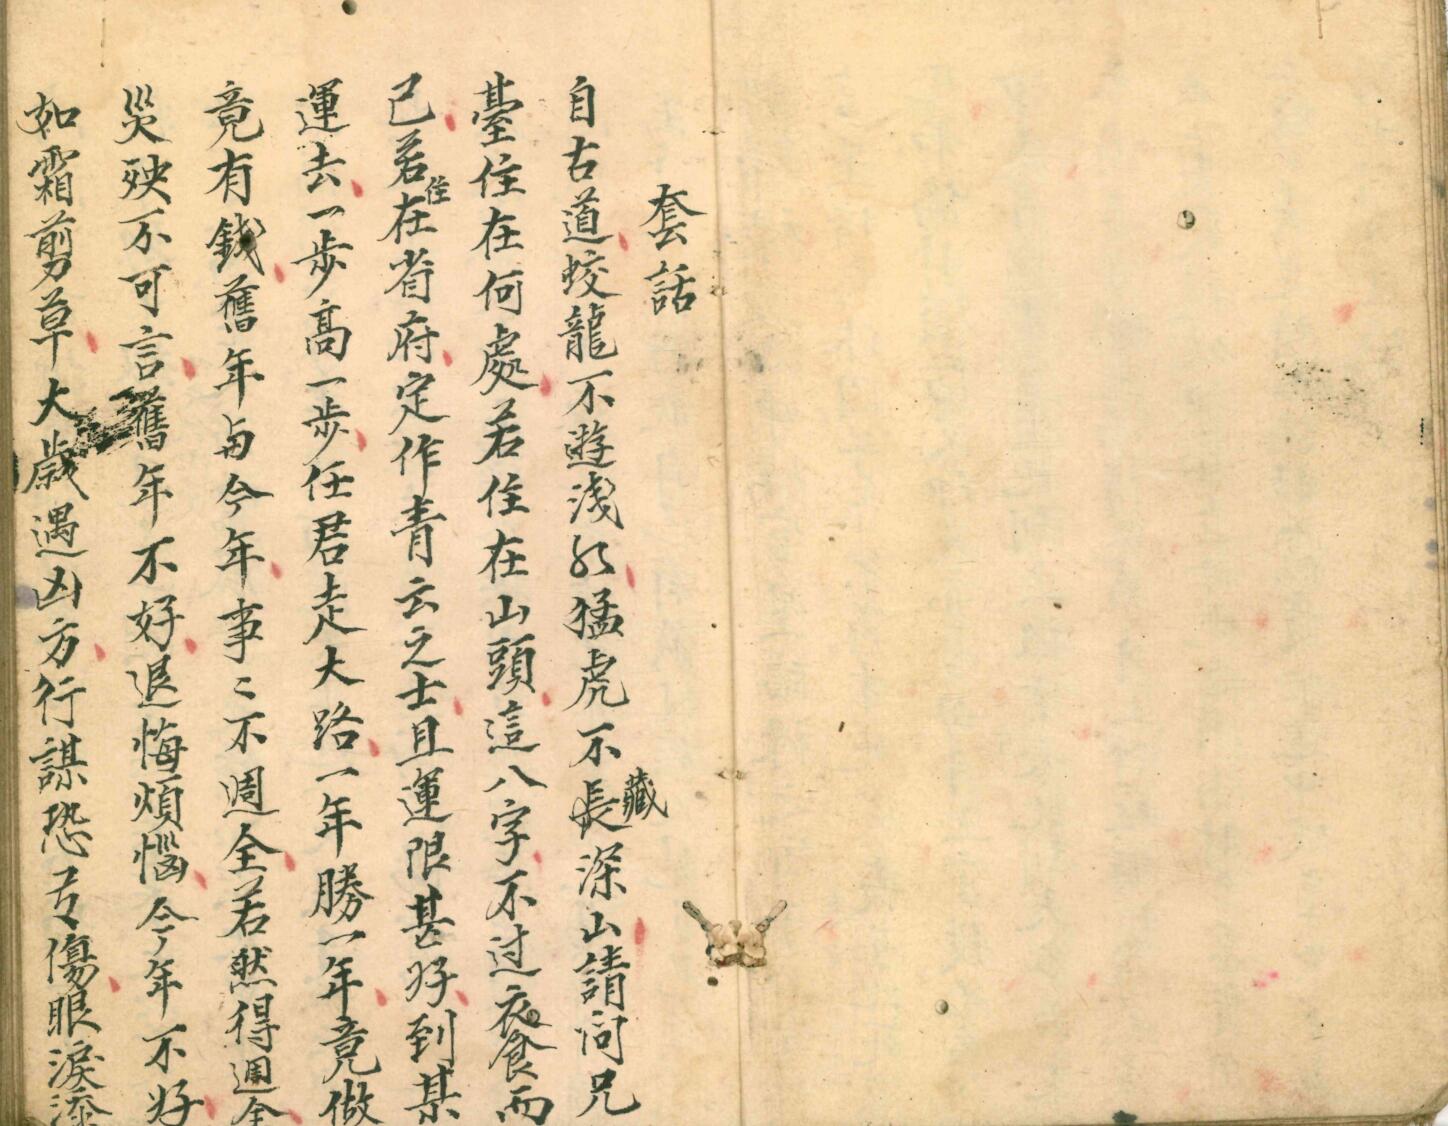 套話
自古道蛟龍不遊淺水猛虎不長藏深山請问兄
臺住在何處若住在山頭這八字不过衣食而
己若在住省府定作青云之士且運限甚好到某
運去一步高一步任君走大路一年勝一年竟做
竟有錢舊年与今年事〻不週全若然得週全
災殃不可言舊年不好退悔煩惱今年不好
如霜剪草大歲遇凶方行謀恐傷眼淚添